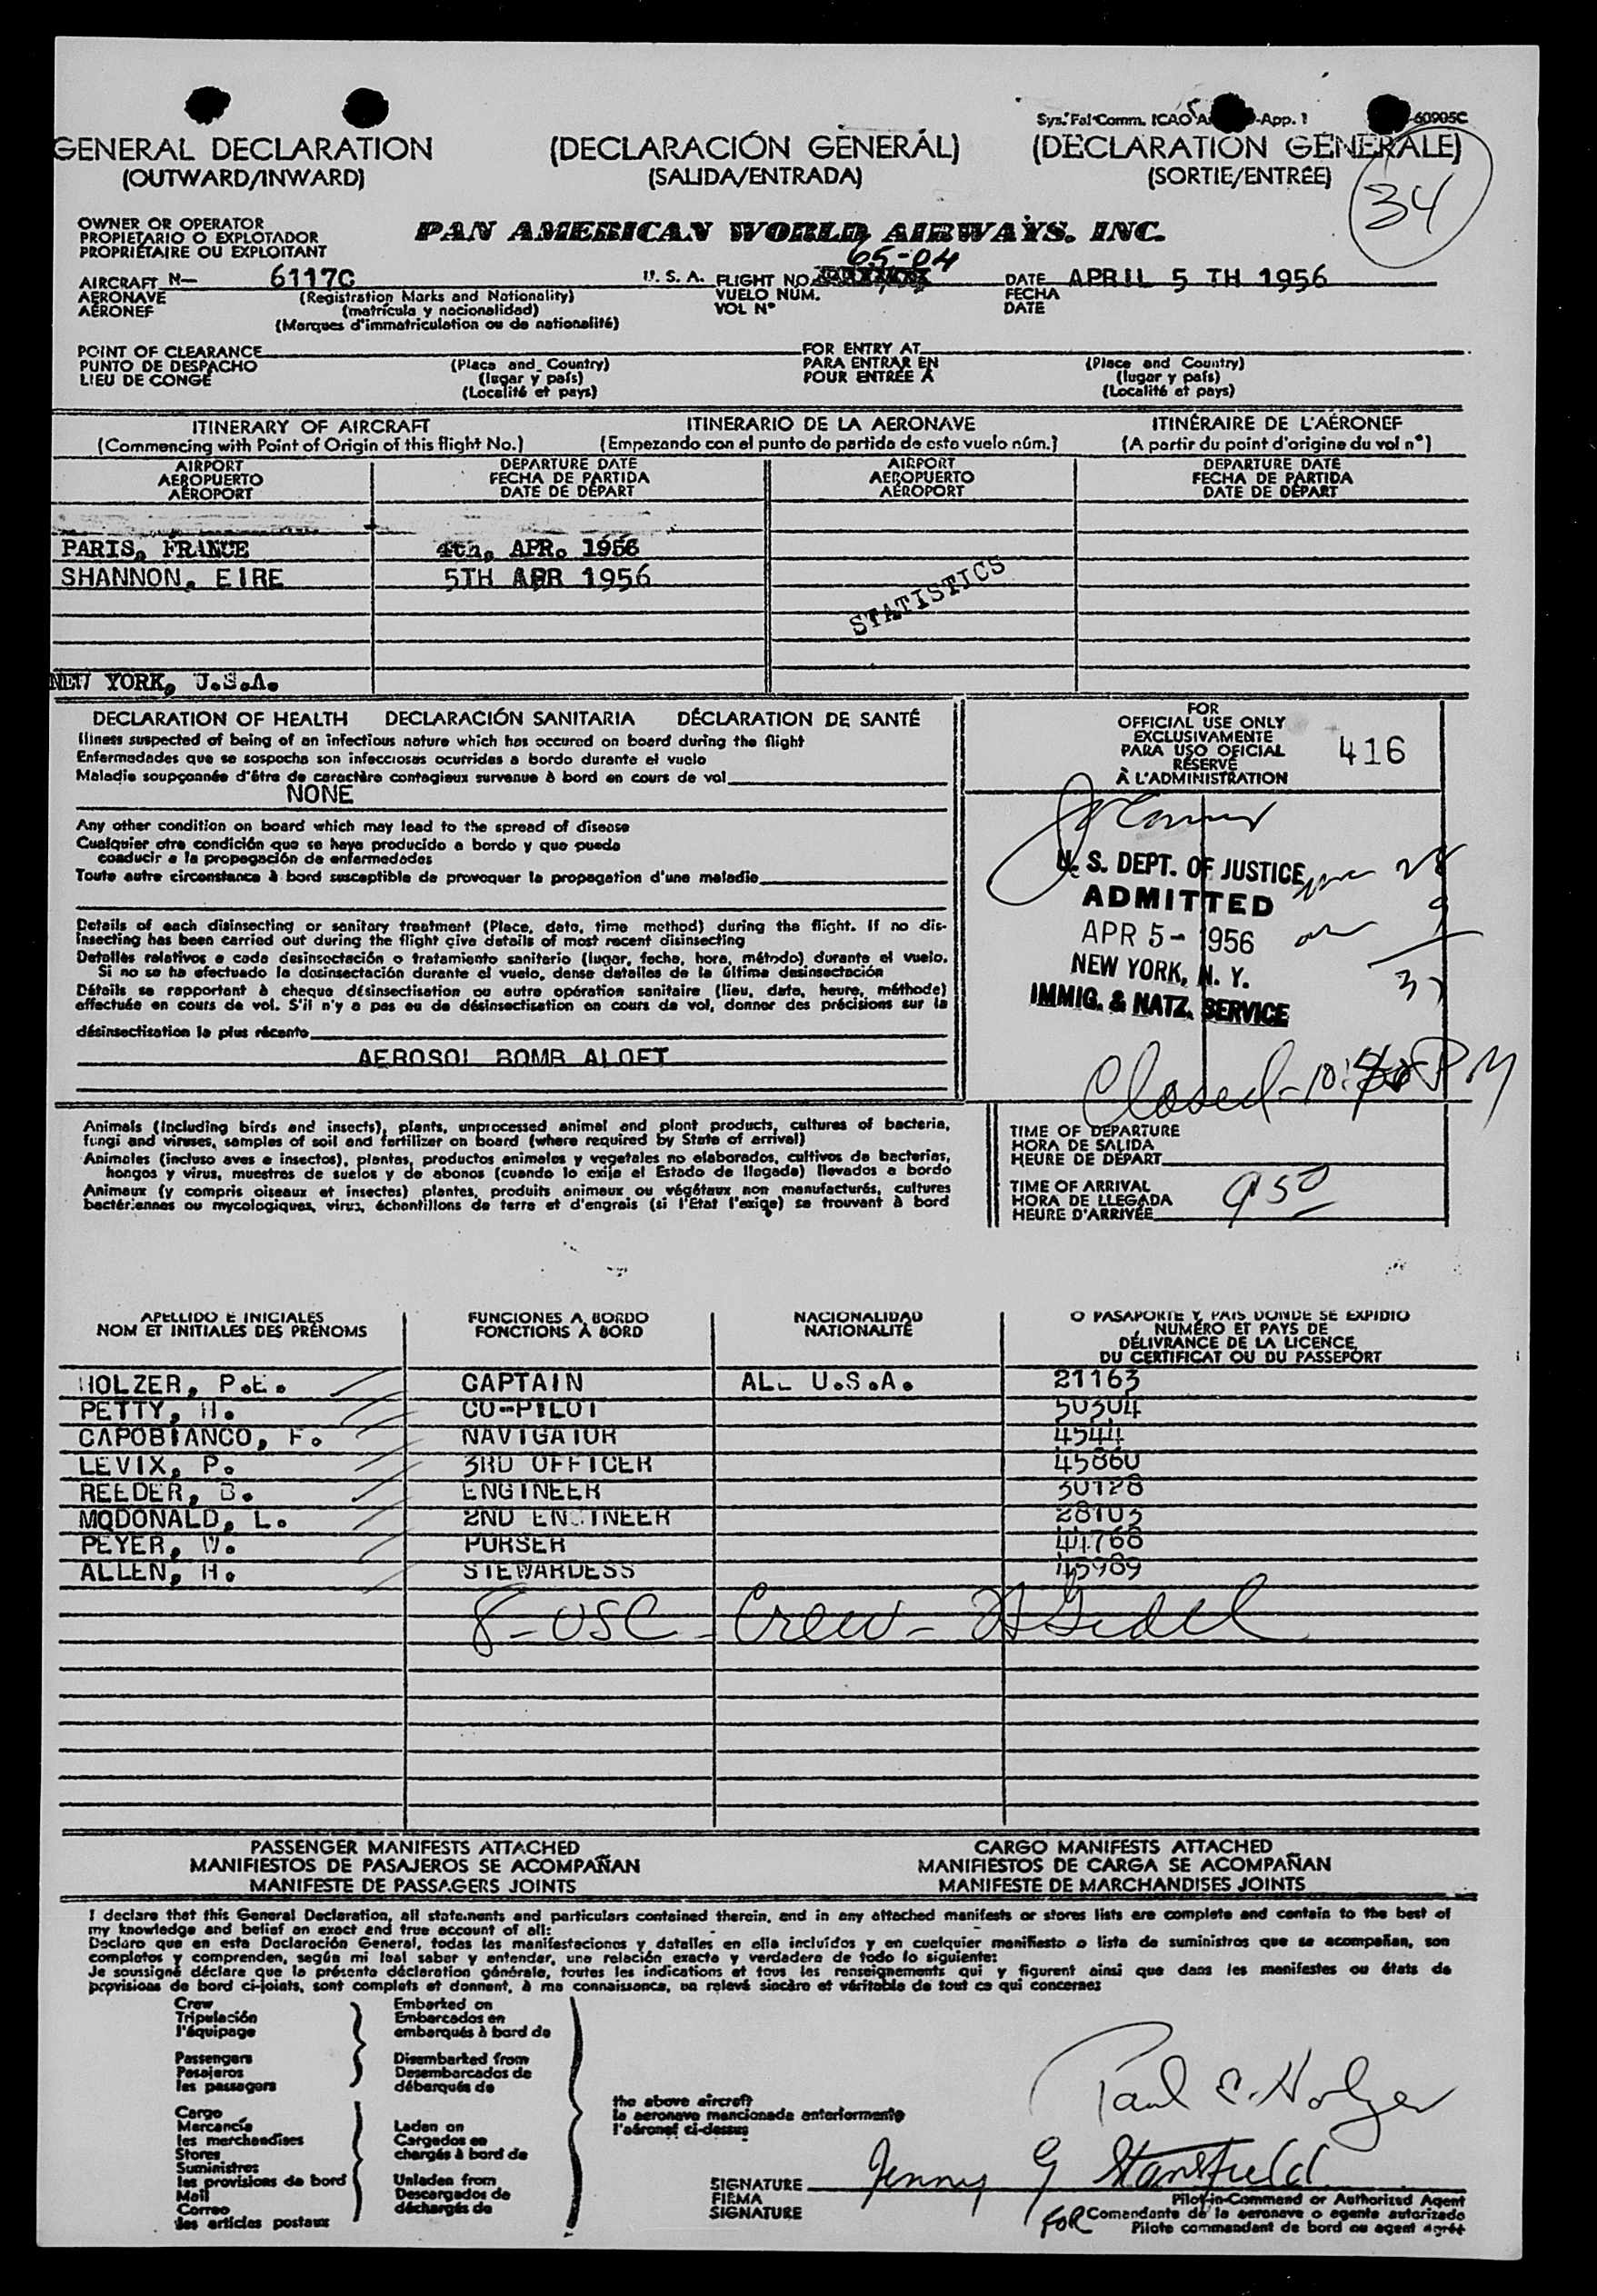 Sys. Fal Comm. ICAO -App. 1 -60905C
GENERAL DECLARATION (DECLARACIÓN GENERAL) (DECLARATION GÉNÉRALE)
(OUTWARD/INWARD) (SALIDA/ENTRADA) (SORTIE/ENTRÉE)
34
OWNER OR OPERATOR
PROPIETARIO O EXPLOTADOR
PROPRIÉTAIRE OU EXPLOITANT
PAN AMERICAN WORLD AIRWAYS. INC.
65-04
AIRCRAFT N— 6117C U. S. A. FLIGHT NO. DATE APRIL 5 TH 1956
AERONAVE (Registration Marks and Nationality) VUELO NUM. FECHA
AÉRONEF (matrícula y nacionalidad) VOL N° DATE
(Marques d'immatriculation ou de nationalité)
POINT OF CLEARANCE FOR ENTRY AT
PUNTO DE DESPACHO (Place and Country) PARA ENTRAR EN (Place and Country)
LIEU DE CONGÉ (lugar y país) POUR ENTRÉE À (lugar y país)
(Localité et pays) (Localité et pays)
ITINERARY OF AIRCRAFT ITINERARIO DE LA AERONAVE ITINÉRAIRE DE L'AÉRONEF
(Commencing with Point of Origin of this flight No.) (Empezando con el punto de partida de este vuelo núm.) (A partir du point d'origine du vol n°)
AIRPORT DEPARTURE DATE AIRPORT DEPARTURE DATE
AEROPUERTO FECHA DE PARTIDA AEROPUERTO FECHA DE PARTIDA
AÉROPORT DATE DE DÉPART AÉROPORT DATE DE DÉPART
PARIS, FRANCE 4th, APR. 1956
SHANNON, EIRE 5TH APR 1956
STATISTICS
NEW YORK, U.S.A.
DECLARATION OF HEALTH DECLARACIÓN SANITARIA DÉCLARATION DE SANTÉ
Illness suspected of being of an infectious nature which has occured on board during the flight
Enfermedades que se sospecha son infecciosas ocurridas a bordo durante el vuelo
Maladie soupçonnée d'être de caractère contagieux survenue à bord en cours de vol
NONE
Any other condition on board which may lead to the spread of disease
Cualquier otra condición que se haya producido a bordo y que pueda
conducir a la propagación de enfermedades
Toute autre circonstance à bord susceptible de provoquer la propagation d'une maladie
Details of each disinsecting or sanitary treatment (Place, date, time method) during the flight. If no dis-
insecting has been carried out during the flight give details of most recent disinsecting
Detalles relativos a cada desinsectación o tratamiento sanitario (lugar, fecha, hora, método) durante el vuelo.
Si no se ha efectuado la desinsectación durante el vuelo, dense detalles de la última desinsectación
Détails se rapportant à cheque désinsectisation ou autre opération sanitaire (lieu, date, heure, méthode)
effectuée en cours de vol. S'il n'y a pas eu de désinsectisation en cours de vol, donner des précisions sur la
désinsectisation la plus récente
AEROSOL BOMB ALOFT
FOR
OFFICIAL USE ONLY
EXCLUSIVAMENTE
PARA USO OFICIAL
RÉSERVÉ
À L'ADMINISTRATION
416
U. S. DEPT. OF JUSTICE
ADMITTED
APR 5- 1956
NEW YORK, N. Y.
IMMIG. & NATZ. SERVICE
Closed - PM
Animals (Including birds and insects), plants, unprocessed animal and plant products, cultures of bacteria,
fungi and viruses, samples of soil and fertilizer on board (where required by State of arrival)
Animales (incluso aves e insectos), plantas, productos animales y vegetales no elaborados, cultivos de bacterias,
hongos y virus, muestras de suelos y de abonos (cuando lo exija el Estado de llegada) llevados a bordo
Animaux (y compris oiseaux et insectes) plantes, produits animaux ou végétaux non manufacturés, cultures
bactériennes ou mycologiques, virus, échantillons de terre et d'engrais (si l'Etat l'exige) se trouvant à bord
TIME OF DEPARTURE
HORA DE SALIDA
HEURE DE DÉPART
TIME OF ARRIVAL
HORA DE LLEGADA
HEURE D'ARRIVÉE 9 50
APELLIDO E INICIALES FUNCIONES A BORDO NACIONALIDAD O PASAPORTE Y PAIS DONDE SE EXPIDIO
NOM ET INITIALES DES PRÉNOMS FONCTIONS À BORD NATIONALITÉ NUMÉRO ET PAYS DE
DÉLIVRANCE DE LA LICENCE,
DU CERTIFICAT OU DU PASSEPORT
HOLZER, P.E. CAPTAIN ALL U.S.A. 21163
PETTY, H. CO-PILOT 50304
CAPOBIANCO, F. NAVIGATOR 4544
LEVIX, P. 3RD OFFICER 45860
REEDER, B. ENGINEER 30128
MQDONALD, L. 2ND ENGINEER 28103
PEYER, W. PURSER 44768
ALLEN, H. STEWARDESS 45989
8 - USC - Crew -
PASSENGER MANIFESTS ATTACHED CARGO MANIFESTS ATTACHED
MANIFIESTOS DE PASAJEROS SE ACOMPAÑAN MANIFIESTOS DE CARGA SE ACOMPAÑAN
MANIFESTE DE PASSAGERS JOINTS MANIFESTE DE MARCHANDISES JOINTS
I declare that this General Declaration, all statements and particulars contained therein, and in any attached manifests or stores lists are complete and contain to the best of
my knowledge and belief an exact and true account of all:
Declaro que en esta Declaración General, todas las manifestaciones y detalles en ella incluídos y en cualquier manifiesto o lista de suministros que se acompañan, son
completos y comprenden, según mi leal saber y entender, una relación exacta y verdadera de todo lo siguiente:
Je soussigné déclare que la présente déclaration générale, toutes les indications et tous les renseignements qui y figurent ainsi que dans les manifestes ou états de
provisions de bord ci-joints, sont complets et donnent, à ma connaissance, un relevé sincère et véritable de tout ce qui concerne:
Crew Embarked on
Tripulación Embarcados en
l'équipage embarqués à bord de
Passengers Disembarked from
Pasajeros Desembarcados de
les passagers débarqués de
the above aircraft
la aeronave mencionada anteriormente
l'aéronef ci-dessus
Cargo
Mercancía Laden on
les marchandises Cargados en
Stores chargés à bord de
Suministros
les provisions de bord Unladen from
Mail Descargados de
Correo déchargés de
les articles postaux
Paul E. Holzer
SIGNATURE Jenny G Stansfield
FIRMA
SIGNATURE
FOR
Pilot-in-Command or Authorized Agent
Comandante de la aeronave o agente autorizado
Pilote commandant de bord ou agent agréé